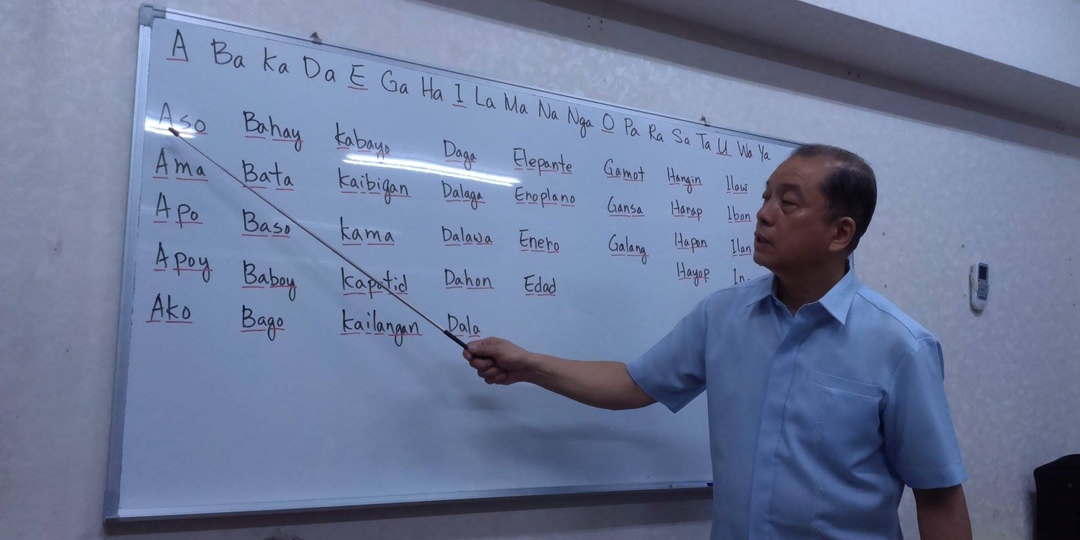 A Ba Ka Da E Ga Ha I La Ma Na Nga O Pa Ra Sa Ta U Wa Ya
Aso Bahay Kabayo Daga Elepante Gamot Hangin Ilaw
Ama Bata Kaibigan Dalaga Eroplano Gansa Harap Ibon
Apo Baso Kama Dalawa Enero Galang Hapon
Apoy Baboy Kapatid Dahon Edad Hayop
Ako Bago Kailangan Dala